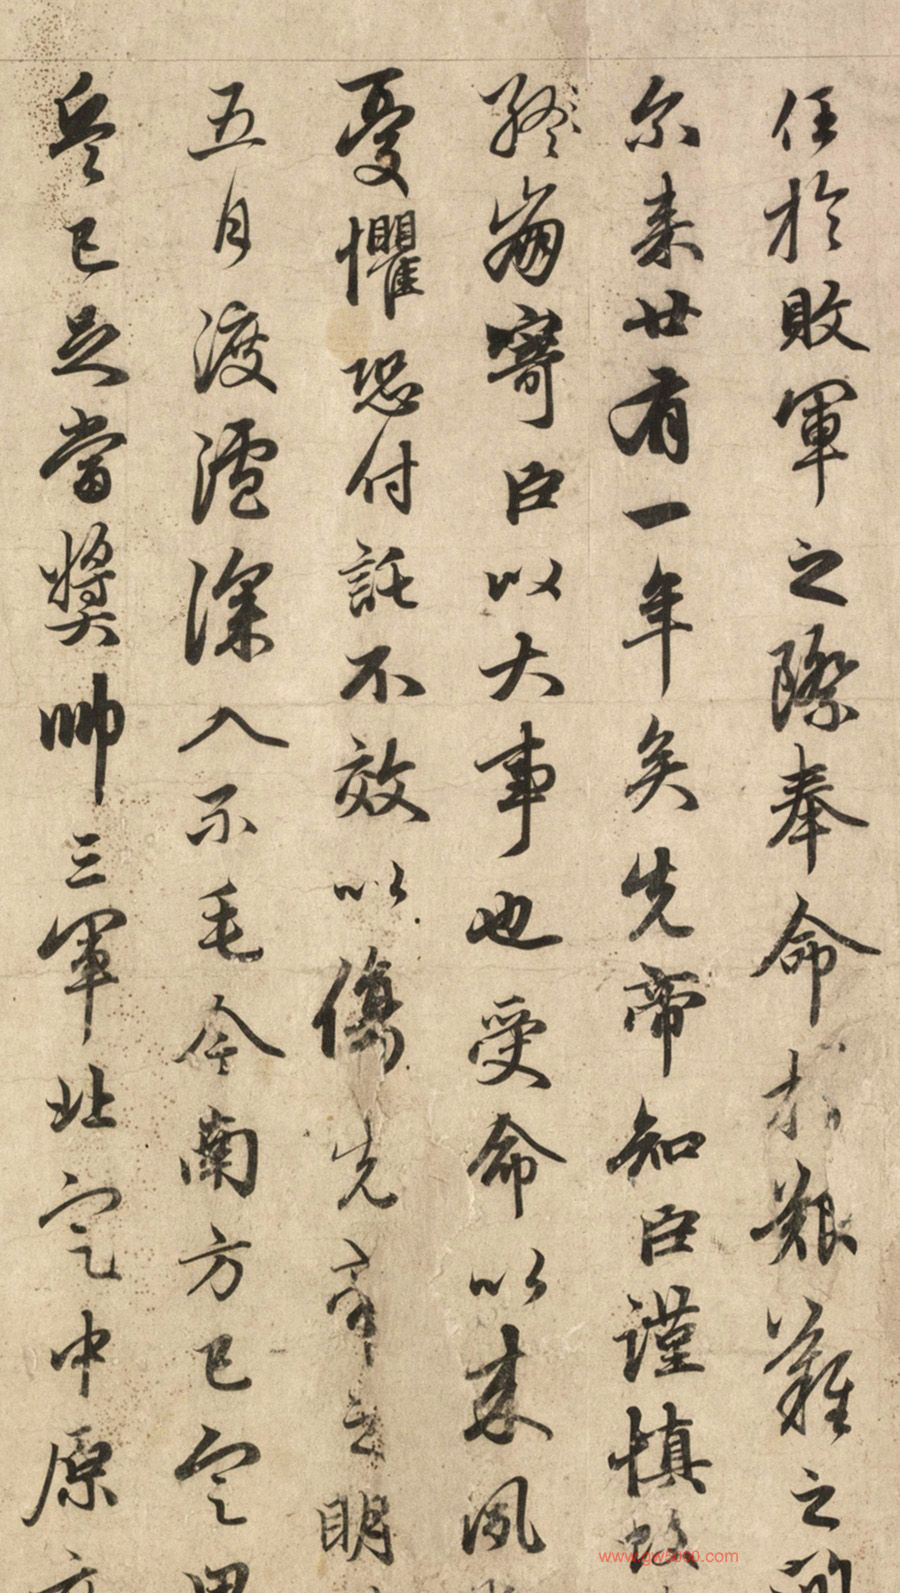 任於敗軍之際奉命於艱難之
尔来廿有一年矣先帝知臣謹慎故
崩寄臣以大事也受命以来夙
憂懼恐付託不效以傷先帝之明
五月渡瀘深入不毛今南方已定
兵已足當獎帥三軍北定中原
www.gw5000.com